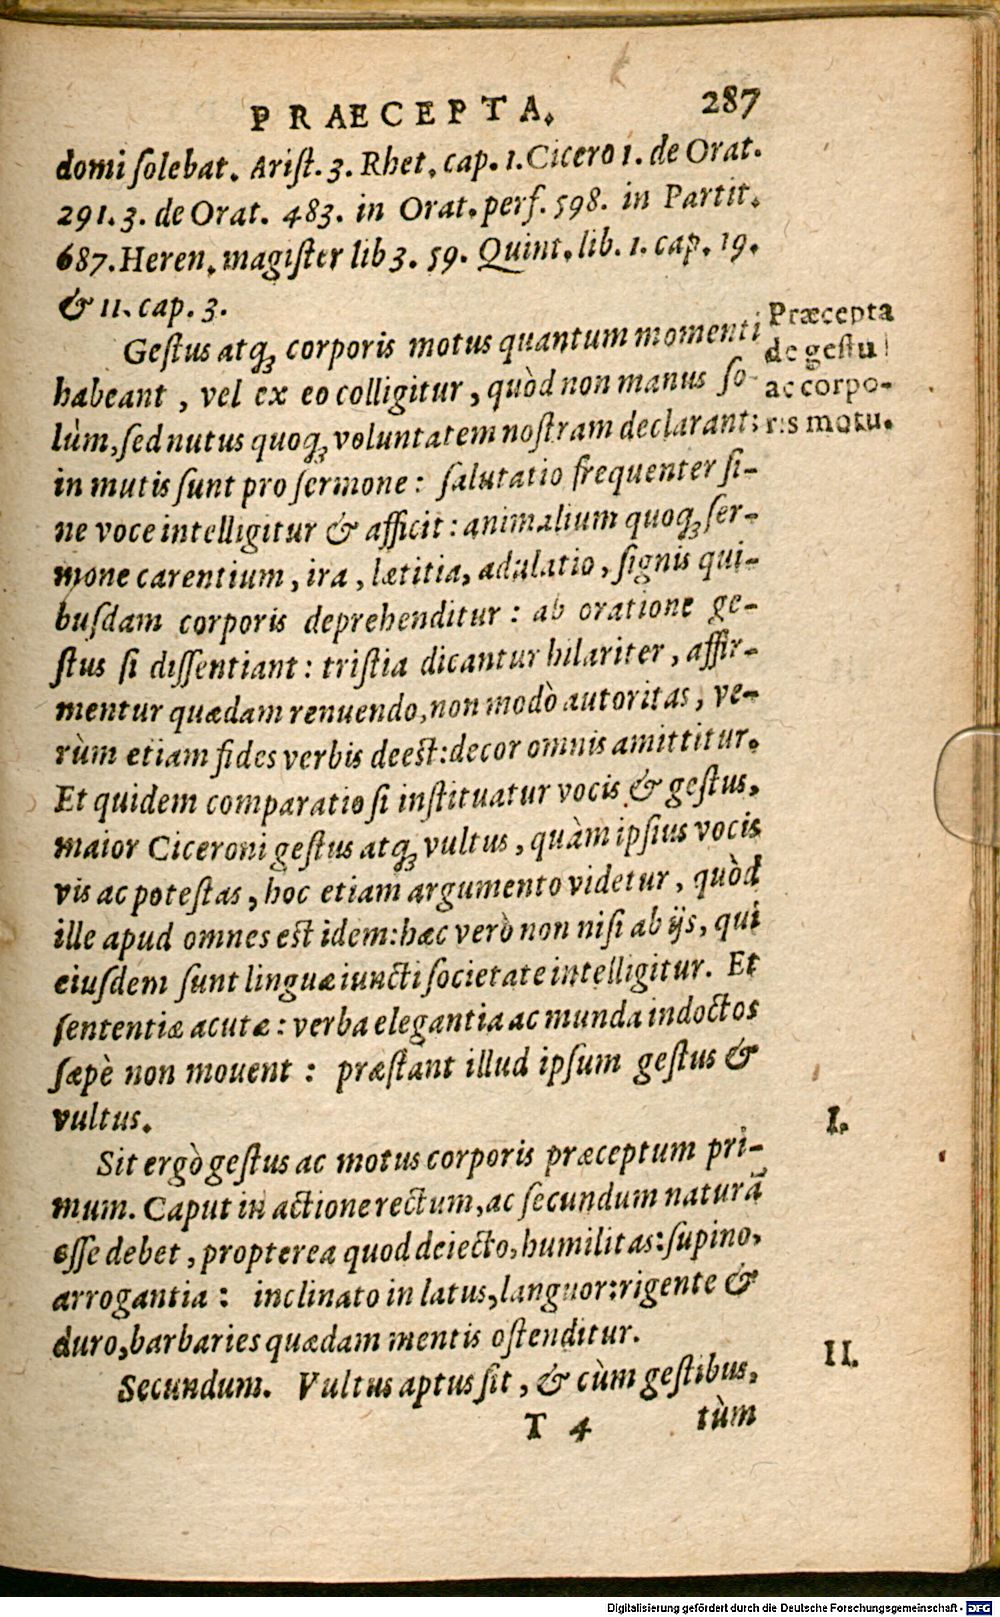 PRAECEPTA. 287
domi ſolebat. Ariſt. 3. Rhet. cap. 1. Cicero 1. de Orat.
291. 3. de Orat. 483. in Orat. perf. 598. in Partit.
687. Heren. magiſter lib 3. 59. Quint. lib. 1. cap. 19.
& 11. cap. 3.
Geſtus atq; corporis motus quantum momenti
habeant, vel ex eo colligitur, quòd non manus ſo-
lùm, ſed nutus quoq; voluntatem noſtram declarant:
in mutis ſunt pro ſermone: ſalutatio frequenter ſi-
ne voce intelligitur & afficit: animalium quoq; ſer-
mone carentium, ira, lætitia, adulatio, ſignis qui-
buſdam corporis deprehenditur: ab oratione ge-
ſtus ſi diſſentiant: triſtia dicantur hilariter, affir-
mentur quædam renuendo, non modò autoritas, ve-
rùm etiam fides verbis deeſt: decor omnis amittitur.
Et quidem comparatio ſi inſtituatur vocis & geſtus,
maior Ciceroni geſtus atq; vultus, quàm ipſius vocis
vis ac poteſtas, hoc etiam argumento videtur, quòd
ille apud omnes eſt idem: hæc verò non niſi ab ijs, qui
eiuſdem ſunt linguæ iuncti ſocietate intelligitur. Et
ſententiæ acutæ: verba elegantia ac munda indoctos
ſæpè non mouent: præſtant illud ipſum geſtus &
vultus.
Sit ergò geſtus ac motus corporis præceptum pri-
mum. Caput in actione rectum, ac ſecundum naturã
eſſe debet, propterea quod deiecto, humilitas: ſupino,
arrogantia: inclinato in latus, languor: rigente &
duro, barbaries quædam mentis oſtenditur.
Secundum. Vultus aptus ſit, & cùm geſtibus,
T 4 tùm
Præcepta
de geſtu
ac corpo-
ris motu.
I.
II.
Digitalisierung gefördert durch die Deutsche Forschungsgemeinschaft - DFG